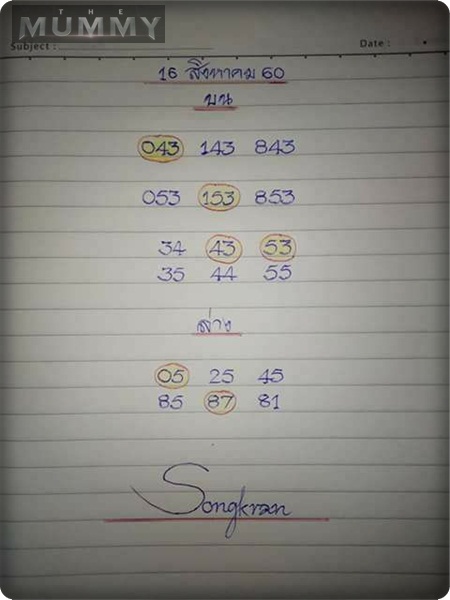 THE
MUMMY
Subject :
Date :
16 สิงหาคม 60
บน
043 143 843
053 153 853
34 43 53
35 44 55
ล่าง
05 25 45
85 87 81
Songkran